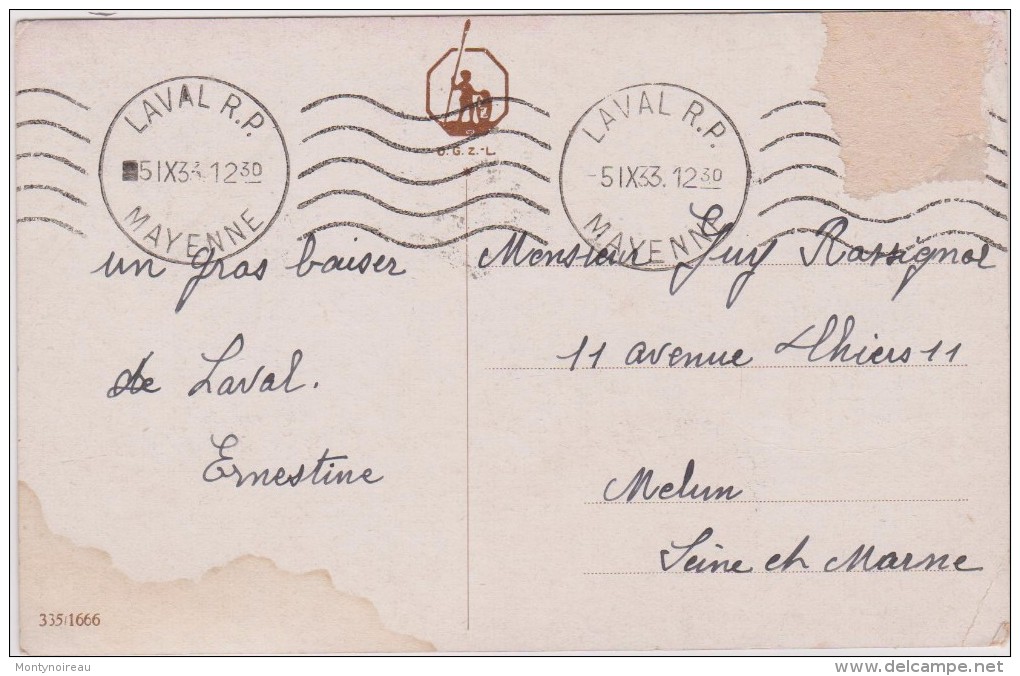 LAVAL R.P.
5 IX 33. 12 30
MAYENNE
O.G.Z.-L.
LAVAL R.P.
-5 IX 33. 12 30
MAYENNE
un gros baiser
de Laval.
Ernestine
Monsieur Guy Rossignol
11 avenue Thiers 11
Melun
Seine et Marne
335/1666
Montynoireau
www.delcampe.net